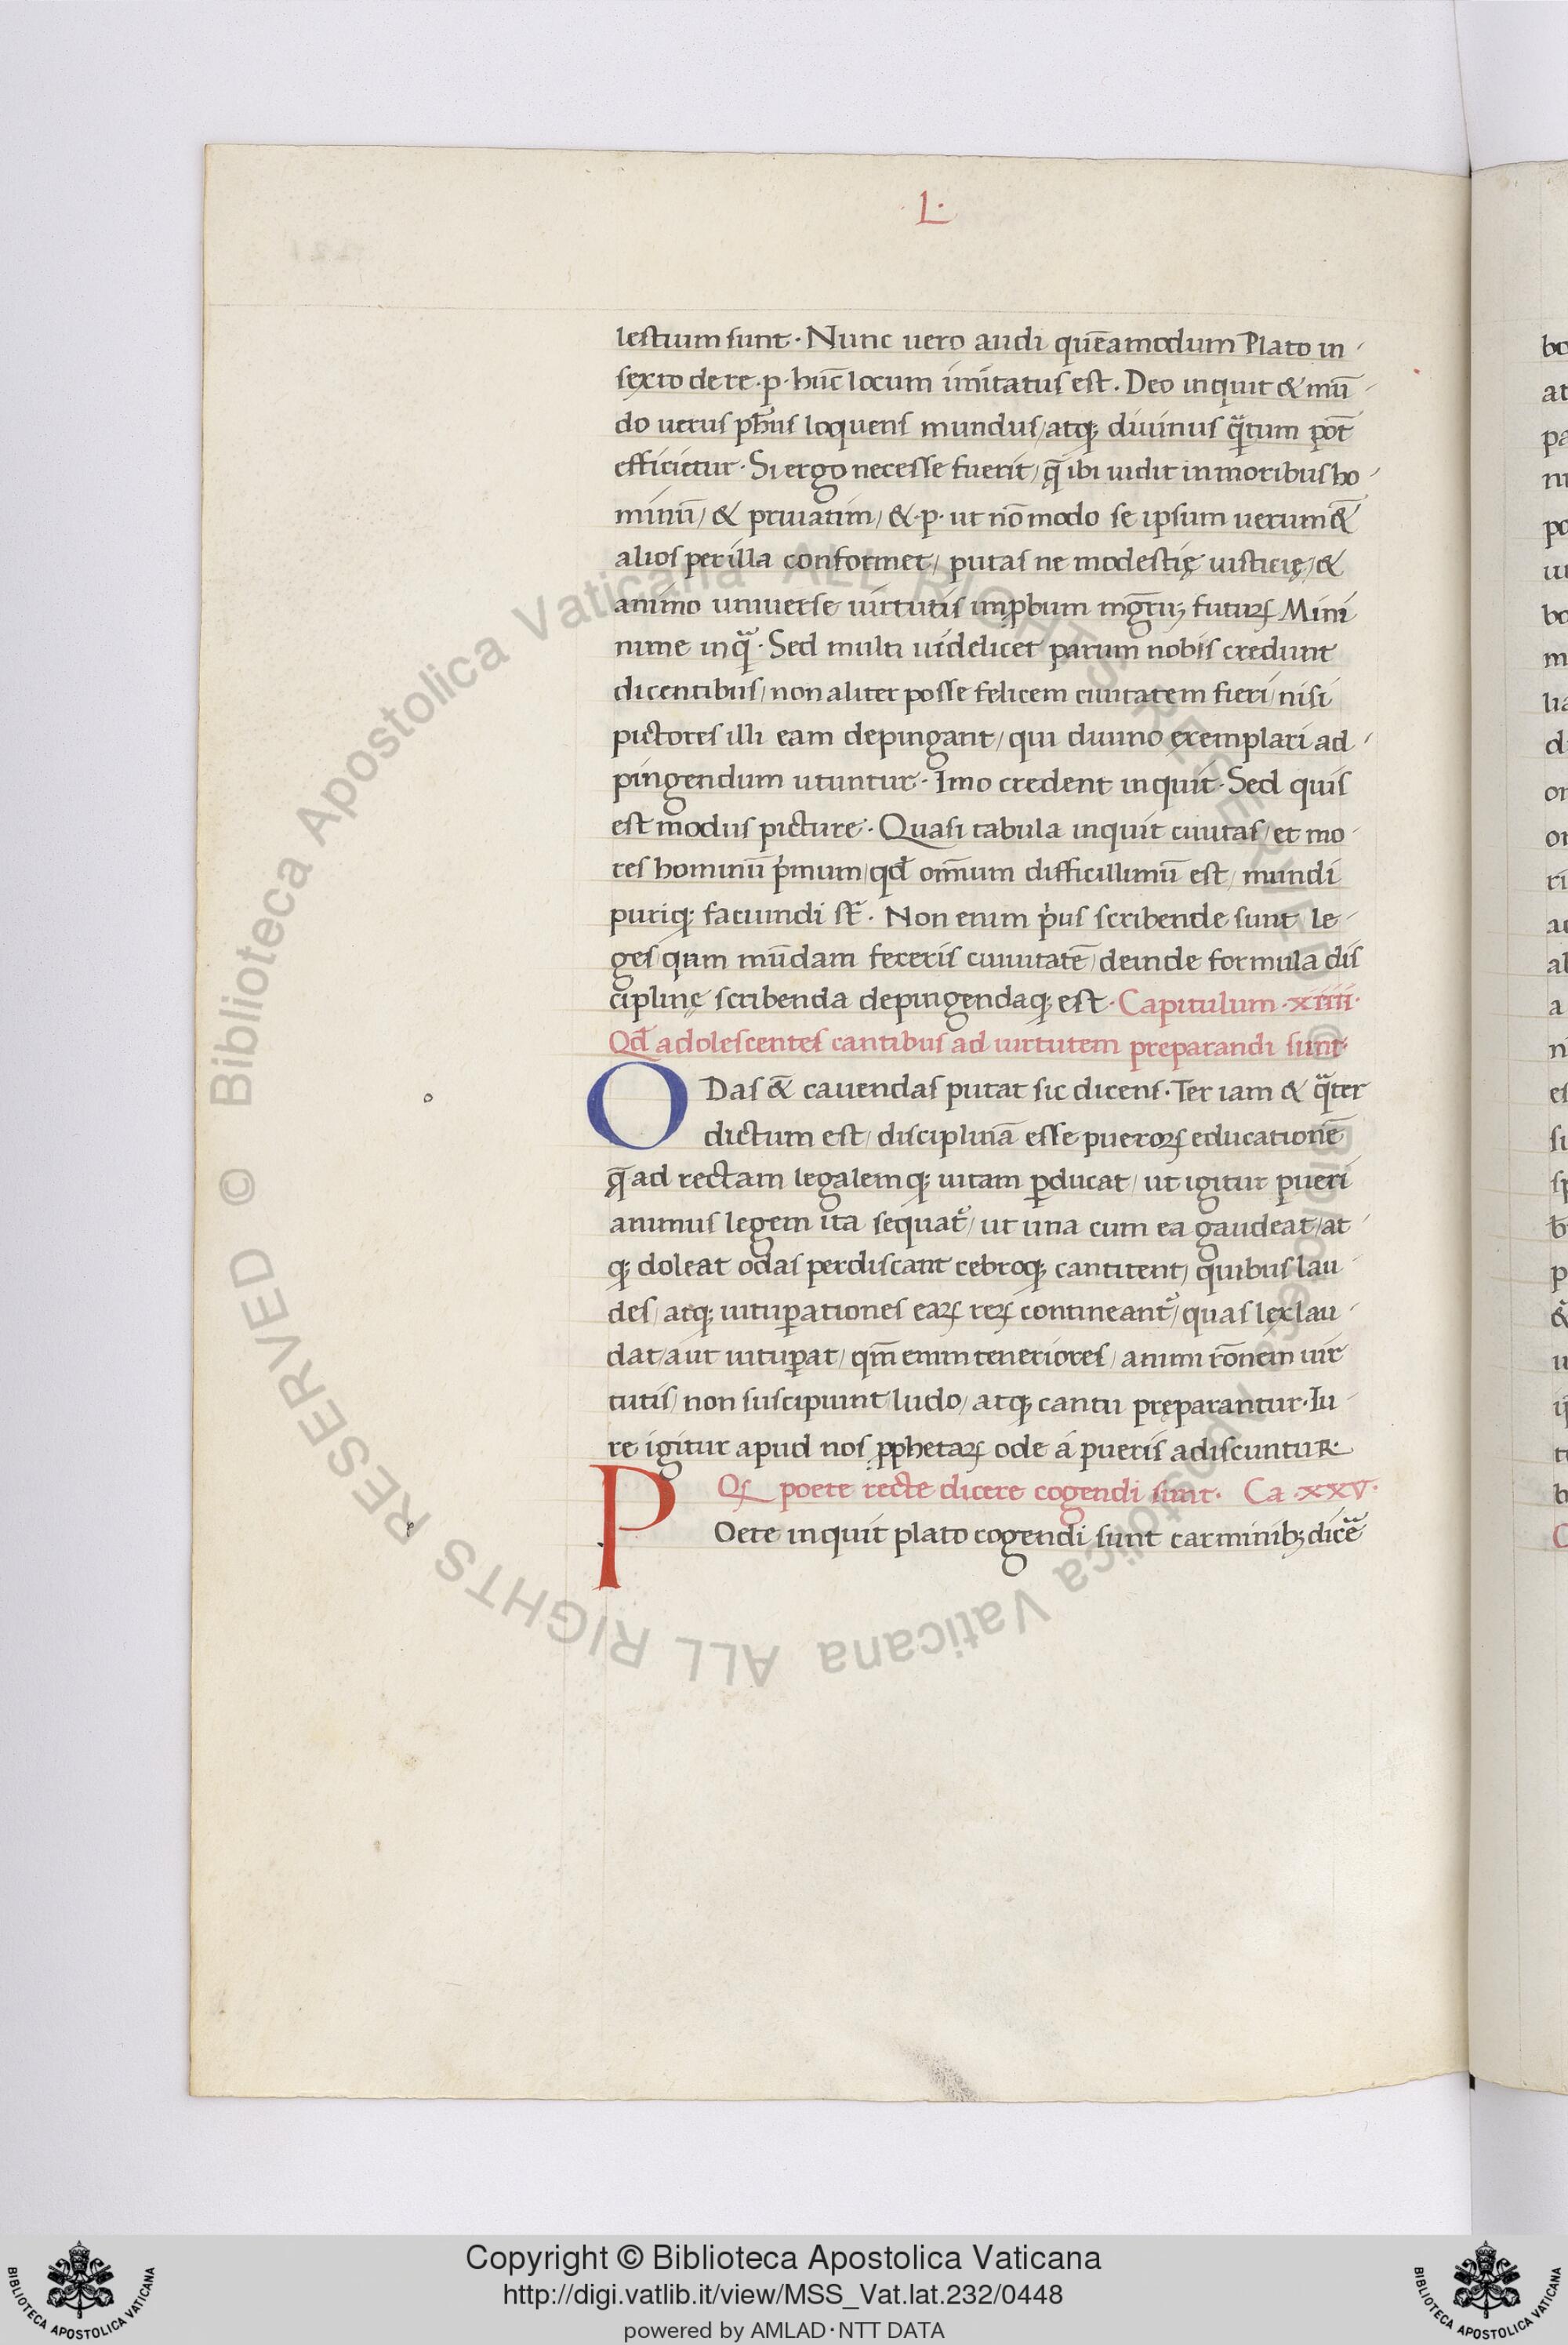 ·L·
lestium sunt · Nunc uero audi quēamodum Plato in
sexto de re · p · hūc locum imitatus est . Deo inquit & mū
do uerus ph̄us loquens mundus / atq; diuinus q̄tum pōt
efficietur · Si ergo necesse fuerit / q̄ ibi uidit in moribus ho
minū / & priuatim / & · p · ut nō modo se ipsum uerum &̄
alios per illa conformet / putas ne modestię iusticię / &
animo uniuerse uirtutis imꝓbum mḡrū; futuꝝ Mini
nime inqͣ · Sed multi uidelicet parum nobis credunt
dicentibus / non aliter posse felicem ciuitatem fieri / nisi
pictores illi eam depingant / qui diuino exemplari ad
pingendum utuntur · Imo credent inquit · Sed quis
est modus picture · Quasi tabula inquit ciuitas / et mo
res hominū pͥmum / qd̄ om̄ium difficillimū est / mundi
puriq; faciundi st̄ · Non enim pͥus scribende sunt le
ges / qum mūdam feceris ciuiutatē / deinde formula dis
ciplinę scribenda depingendaq; est · Capitulum · xiiii ·
Qd̄ adolescentes cantibus ad uirtutem preparandi sunt·
ODas &̄ cauendas putat sic dicens · Ter iam & qͣter
dictum est / disciplinā esse pueroꝝ educationē
q̄ ad rectam legalemq; uitam ꝑducat / ut igitur pueri
animus legem ita sequat᷑ / ut una cum ea gaudeat / at
q; doleat odas perdiscant cebroq; cantitent / quibus lau
des / atq; uituꝑationes eaꝝ reꝝ contineant᷑ / quas lex lau
dat / aut uituꝑat / qm̄ enim teneriores / animi rōnem uir
tutis / non suscipiunt ludo / atq; cantu pręparantur · Iu
re igitur apud nos ꝓphetaꝝ ode á pueris adiscuntur
Qꝫ poete recte dicere cogendi sunt · Ca · xxv ·
POete inquit plato cogendi sunt carminib; dicēͣ
© Biblioteca Apostolica Vaticana ALL RIGHTS RESERVED © Biblioteca Apostolica Vaticana ALL RIGHTS RESERVED
Copyright © Biblioteca Apostolica Vaticana
http://digi.vatlib.it/view/MSS_Vat.lat.232/0448
powered by AMLAD·NTT DATA
BIBLIOTECA APOSTOLICA VATICANA
BIBLIOTECA APOSTOLICA VATICANA